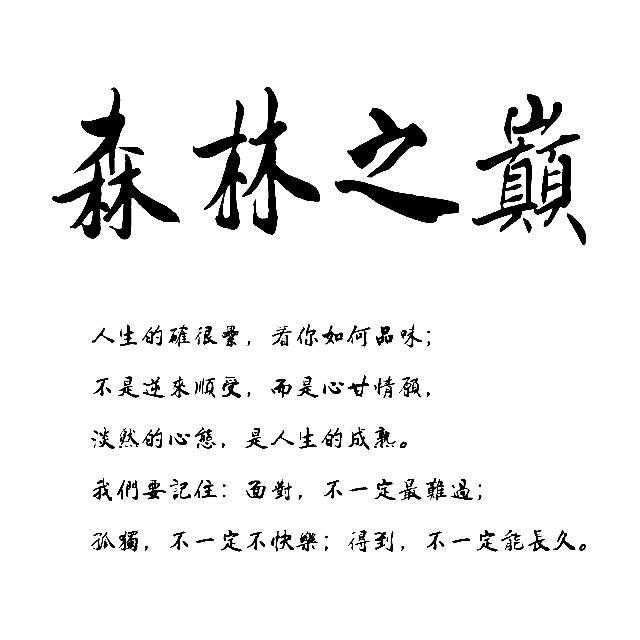 森林之巔
人生的確很纍，看你如何品味；
不是逆來順受，而是心甘情願，
淡然的心態，是人生的成熟。
我們要記住：面對，不一定最難過；
孤獨，不一定不快樂；得到，不一定能長久。